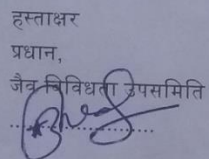 हस्ताक्षर
प्रधान,
जैव विविधता उपसमिति